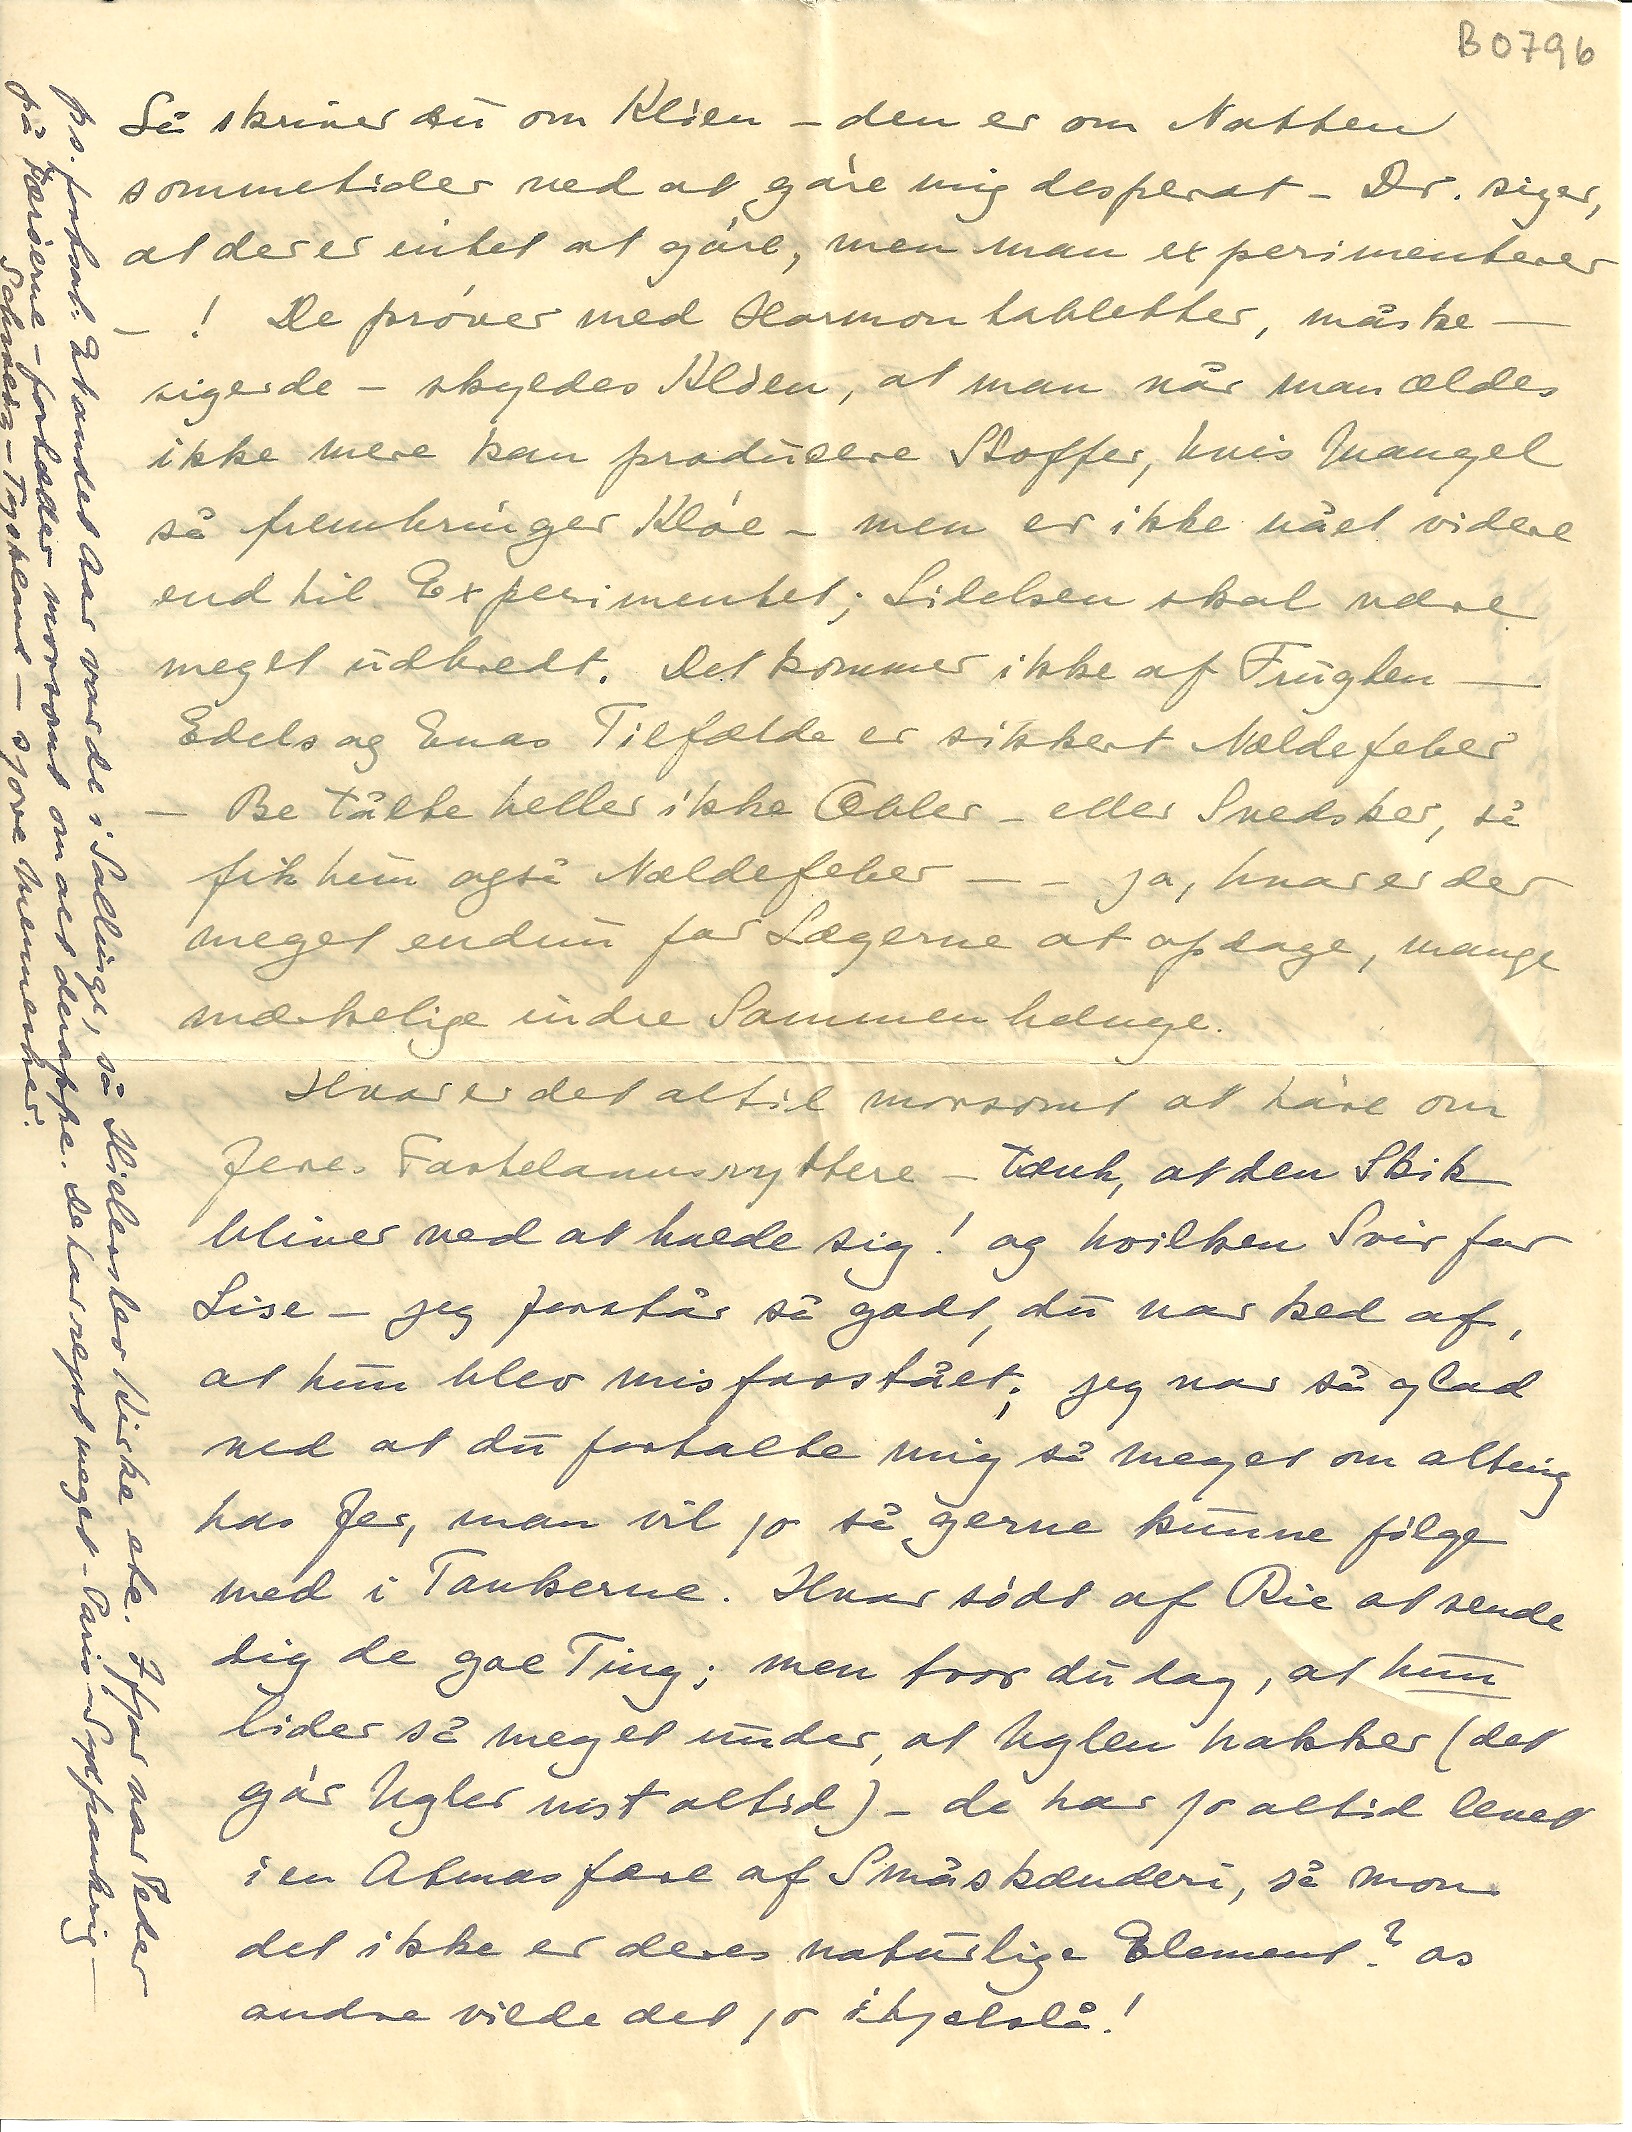 B0796
Så skriver du om Kløen – den er om Natten
sommetider ved at gøre mig desperat – Dr. siger,
at der er intet at gøre, men man experimenterer
– ! De prøver med Hormontabletter, måske –
siger de – skyldes Kløen, at man når man ældes
ikke mere kan producere Stoffer, hvis Mangel
så frembringer Kløe – men er ikke nået videre
end til Experimentet; Lidelsen skal være
meget udbredt. Det kommer ikke af Frugten –
Edels og Enas Tilfælde er sikkert Nældefeber
– Be tålte heller ikke Æbler – eller Svedsker, så
fik hun også Nældefeber – – ja, hvor er der
meget endnu for Lægerne at opdage, mange
mærkelige indre Sammenhænge.
Hvor er det altid morsomt at høre om
Jeres Fastelavnsryttere – tænk, at den Skik
bliver ved at holde sig! og hvilken Svir for
Lise – jeg forstår så godt, du var ked af,
at hun blev misforstået; jeg var så glad
ved at du fortalte mig så meget om alting
hos Jer, man vil jo så gerne kunne følge
med i Tankerne. Hvor sødt af Rie at sende
dig de goe Ting; men tror du dog, at hun
lider så meget under, at Uglen hakker (det
gør Ugler vist altid) – de har jo altid levet
i en Atmosfære af Småskænderi, så mon
det ikke er deres naturlige Element? os
andre vilde det jo ihjelslå!
p.s. fortsat: Ethandet Aar var de i Sallinge, så Hillerslev Kirke ete. Ifjor var Peder
på Færøerne – fortæller morsomt om alt deroppe. De har rejst meget – Paris – Sydfrankrig –
Schweiz – Tyskland – sjove Mennesker.